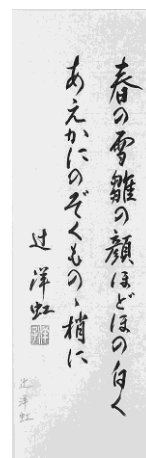 春の雪雛の顔ほどほの白く
あえかにのぞくもの丶梢に
辻洋虹
辻洋虹